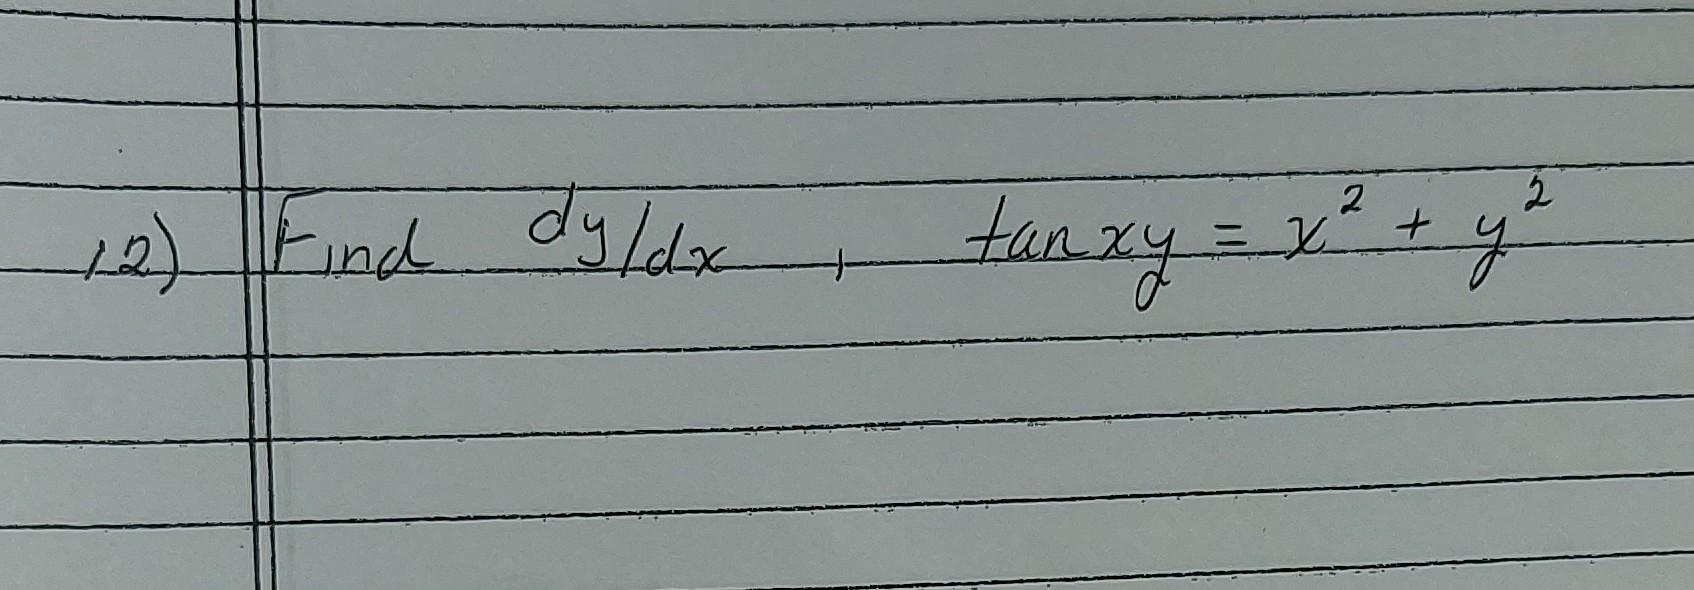 12) Find dy/dx , tan xy = x² + y²